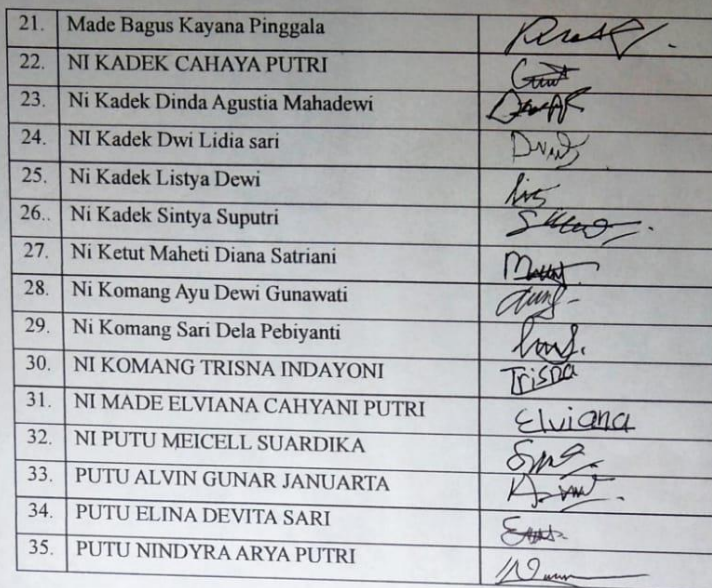 21. Made Bagus Kayana Pinggala
22. NI KADEK CAHAYA PUTRI
23. Ni Kadek Dinda Agustia Mahadewi
24. NI Kadek Dwi Lidia sari
25. Ni Kadek Listya Dewi
26.. Ni Kadek Sintya Suputri
27. Ni Ketut Maheti Diana Satriani
28. Ni Komang Ayu Dewi Gunawati
29. Ni Komang Sari Dela Pebiyanti
30. NI KOMANG TRISNA INDAYONI Trisna
31. NI MADE ELVIANA CAHYANI PUTRI Elviana
32. NI PUTU MEICELL SUARDIKA
33. PUTU ALVIN GUNAR JANUARTA
34. PUTU ELINA DEVITA SARI
35. PUTU NINDYRA ARYA PUTRI